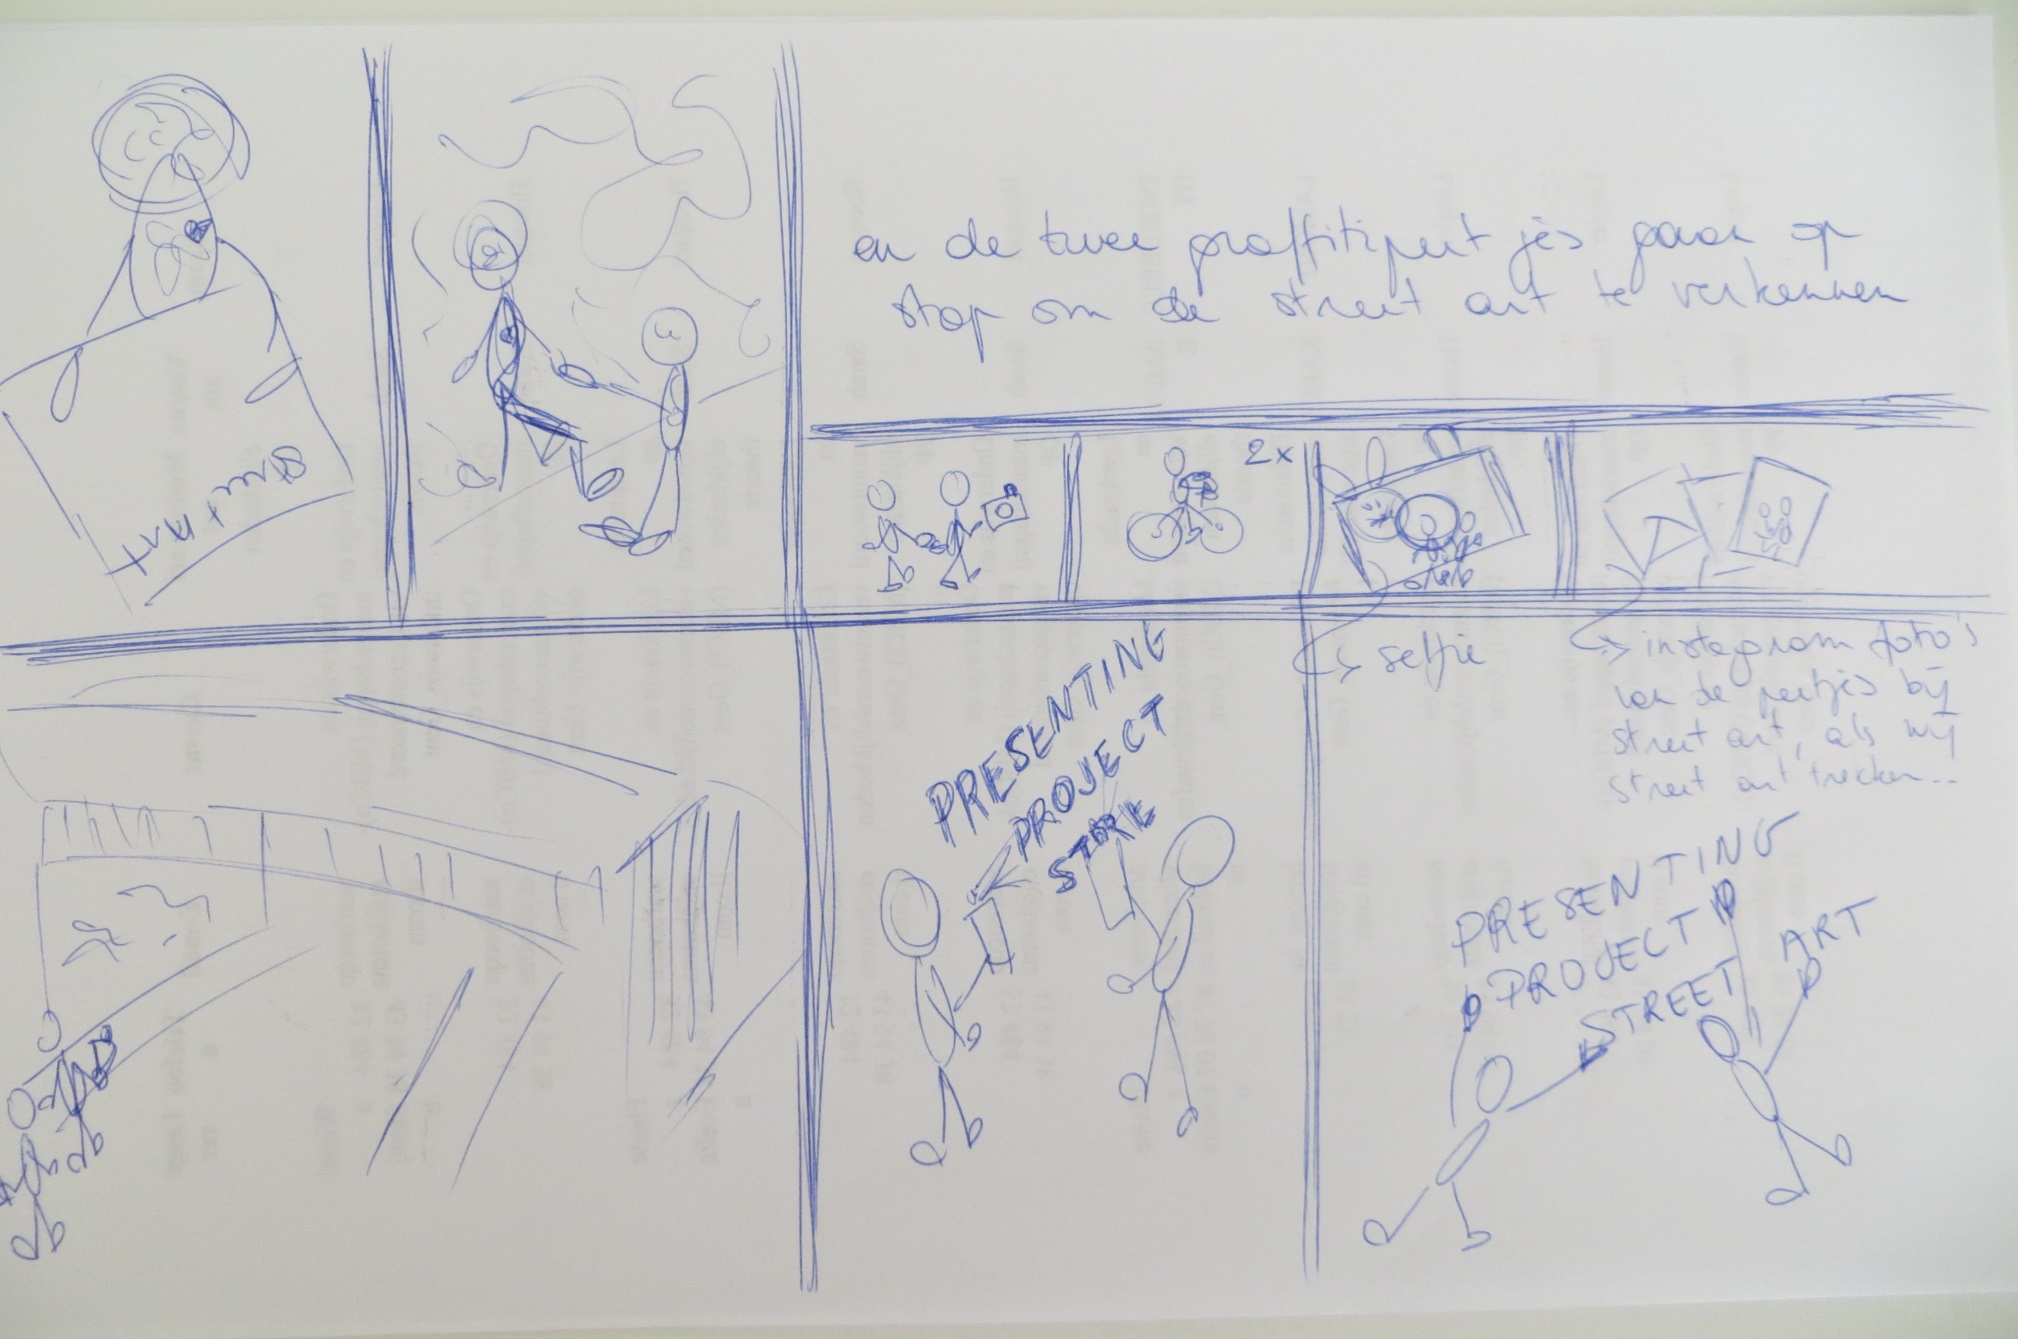 street
Art
en de twee graffitipeetjes gaan op
stap om de street art te verkennen
2x
selfie
instagram foto's
van de peetjes bij
street art, als wij
street art trekken...
PRESENTING
PROJECT
PRESENTING
PROJECT
STREET ART